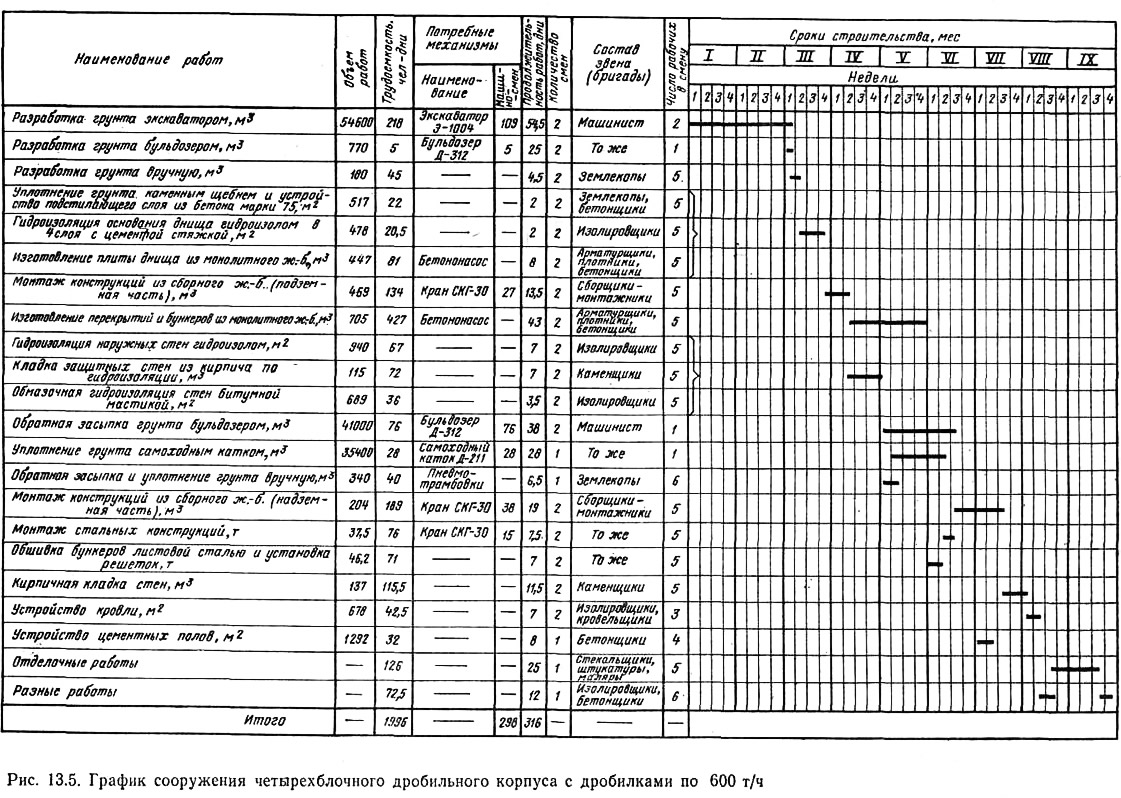 Наименование работ | Объем работ | Трудоемкость, чел-дни | Потребные механизмы | Продолжительность работ, дни | Количество смен | Состав звена (бригады) | Число рабочих в смену | Сроки строительства, мес
Наименование | Машино-смен | I II III IV V VI VII VIII IX
Недели
1 2 3 4 1 2 3 4 1 2 3 4 1 2 3 4 1 2 3 4 1 2 3 4 1 2 3 4 1 2 3 4 1 2 3 4
Разработка грунта экскаватором, м3 | 54600 | 218 | Экскаватор Э-1004 | 109 | 54,5 | 2 | Машинист | 2
Разработка грунта бульдозером, м3 | 770 | 5 | Бульдозер Д-312 | 5 | 25 | 2 | То же | 1
Разработка грунта вручную, м3 | 180 | 45 | — | — | 4,5 | 2 | Землекопы | 5
Уплотнение грунта каменным щебнем и устройство подстилающего слоя из бетона марки 75, м2 | 517 | 22 | — | — | 2 | 2 | Землекопы, бетонщики | 5
Гидроизоляция основания днища гидроизолом в 4 слоя с цементной стяжкой, м2 | 478 | 20,5 | — | — | 2 | 2 | Изолировщики | 5
Изготовление плиты днища из монолитного ж.-б, м3 | 447 | 81 | Бетононасос | — | 8 | 2 | Арматурщики, плотники, бетонщики | 5
Монтаж конструкций из сборного ж.-б. (подземная часть), м3 | 469 | 134 | Кран СКГ-30 | 27 | 13,5 | 2 | Сборщики-монтажники | 5
Изготовление перекрытий и бункеров из монолитного ж-б, м3 | 705 | 427 | Бетононасос | — | 43 | 2 | Арматурщики, плотники, бетонщики | 5
Гидроизоляция наружных стен гидроизолом, м2 | 940 | 67 | — | — | 7 | 2 | Изолировщики | 5
Кладка защитных стен из кирпича по гидроизоляции, м3 | 115 | 72 | — | — | 7 | 2 | Каменщики | 5
Обмазочная гидроизоляция стен битумной мастикой, м2 | 689 | 36 | — | — | 3,5 | 2 | Изолировщики | 5
Обратная засыпка грунта бульдозером, м3 | 41000 | 76 | Бульдозер Д-312 | 76 | 38 | 2 | Машинист | 1
Уплотнение грунта самоходным катком, м3 | 35400 | 28 | Самоходный каток Д-211 | 28 | 28 | 1 | То же | 1
Обратная засыпка и уплотнение грунта вручную, м3 | 340 | 40 | Пневмотрамбовки | — | 6,5 | 1 | Землекопы | 6
Монтаж конструкций из сборного ж.-б. (надземная часть), м3 | 204 | 189 | Кран СКГ-30 | 38 | 19 | 2 | Сборщики-монтажники | 5
Монтаж стальных конструкций, т | 37,5 | 76 | Кран СКГ-30 | 15 | 7,5 | 2 | То же | 5
Обшивка бункеров листовой сталью и установка решеток, т | 46,2 | 71 | — | — | 7 | 2 | То же | 5
Кирпичная кладка стен, м3 | 137 | 115,5 | — | — | 11,5 | 2 | Каменщики | 5
Устройство кровли, м2 | 678 | 42,5 | — | — | 7 | 2 | Изолировщики, кровельщики | 3
Устройство цементных полов, м2 | 1292 | 32 | — | — | 8 | 1 | Бетонщики | 4
Отделочные работы | — | 126 | — | — | 25 | 1 | Стекальщики, штукатуры, маляры | 5
Разные работы | — | 72,5 | — | — | 12 | 1 | Изолировщики, бетонщики | 6
Итого | — | 1996 | — | 298 | 316 | — | — | —
Рис. 13.5. График сооружения четырехблочного дробильного корпуса с дробилками по 600 т/ч